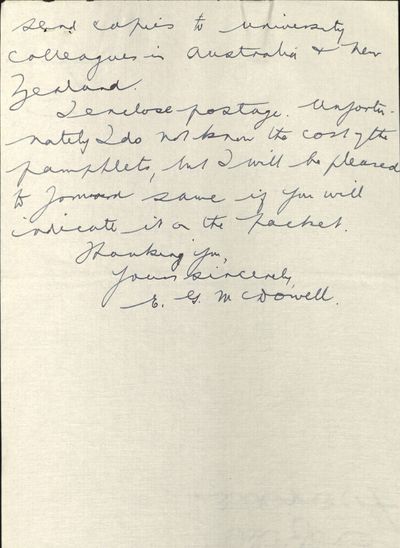 send copies to university
colleagues in Australia & New
Zealand.
I enclose postage. Unfortu-
nately I do not know the cost of the
pamphlets, but I will be pleased
to forward same if you will
indicate it on the packet.
Thanking you,
Yours sincerely,
E. G. McDowell.